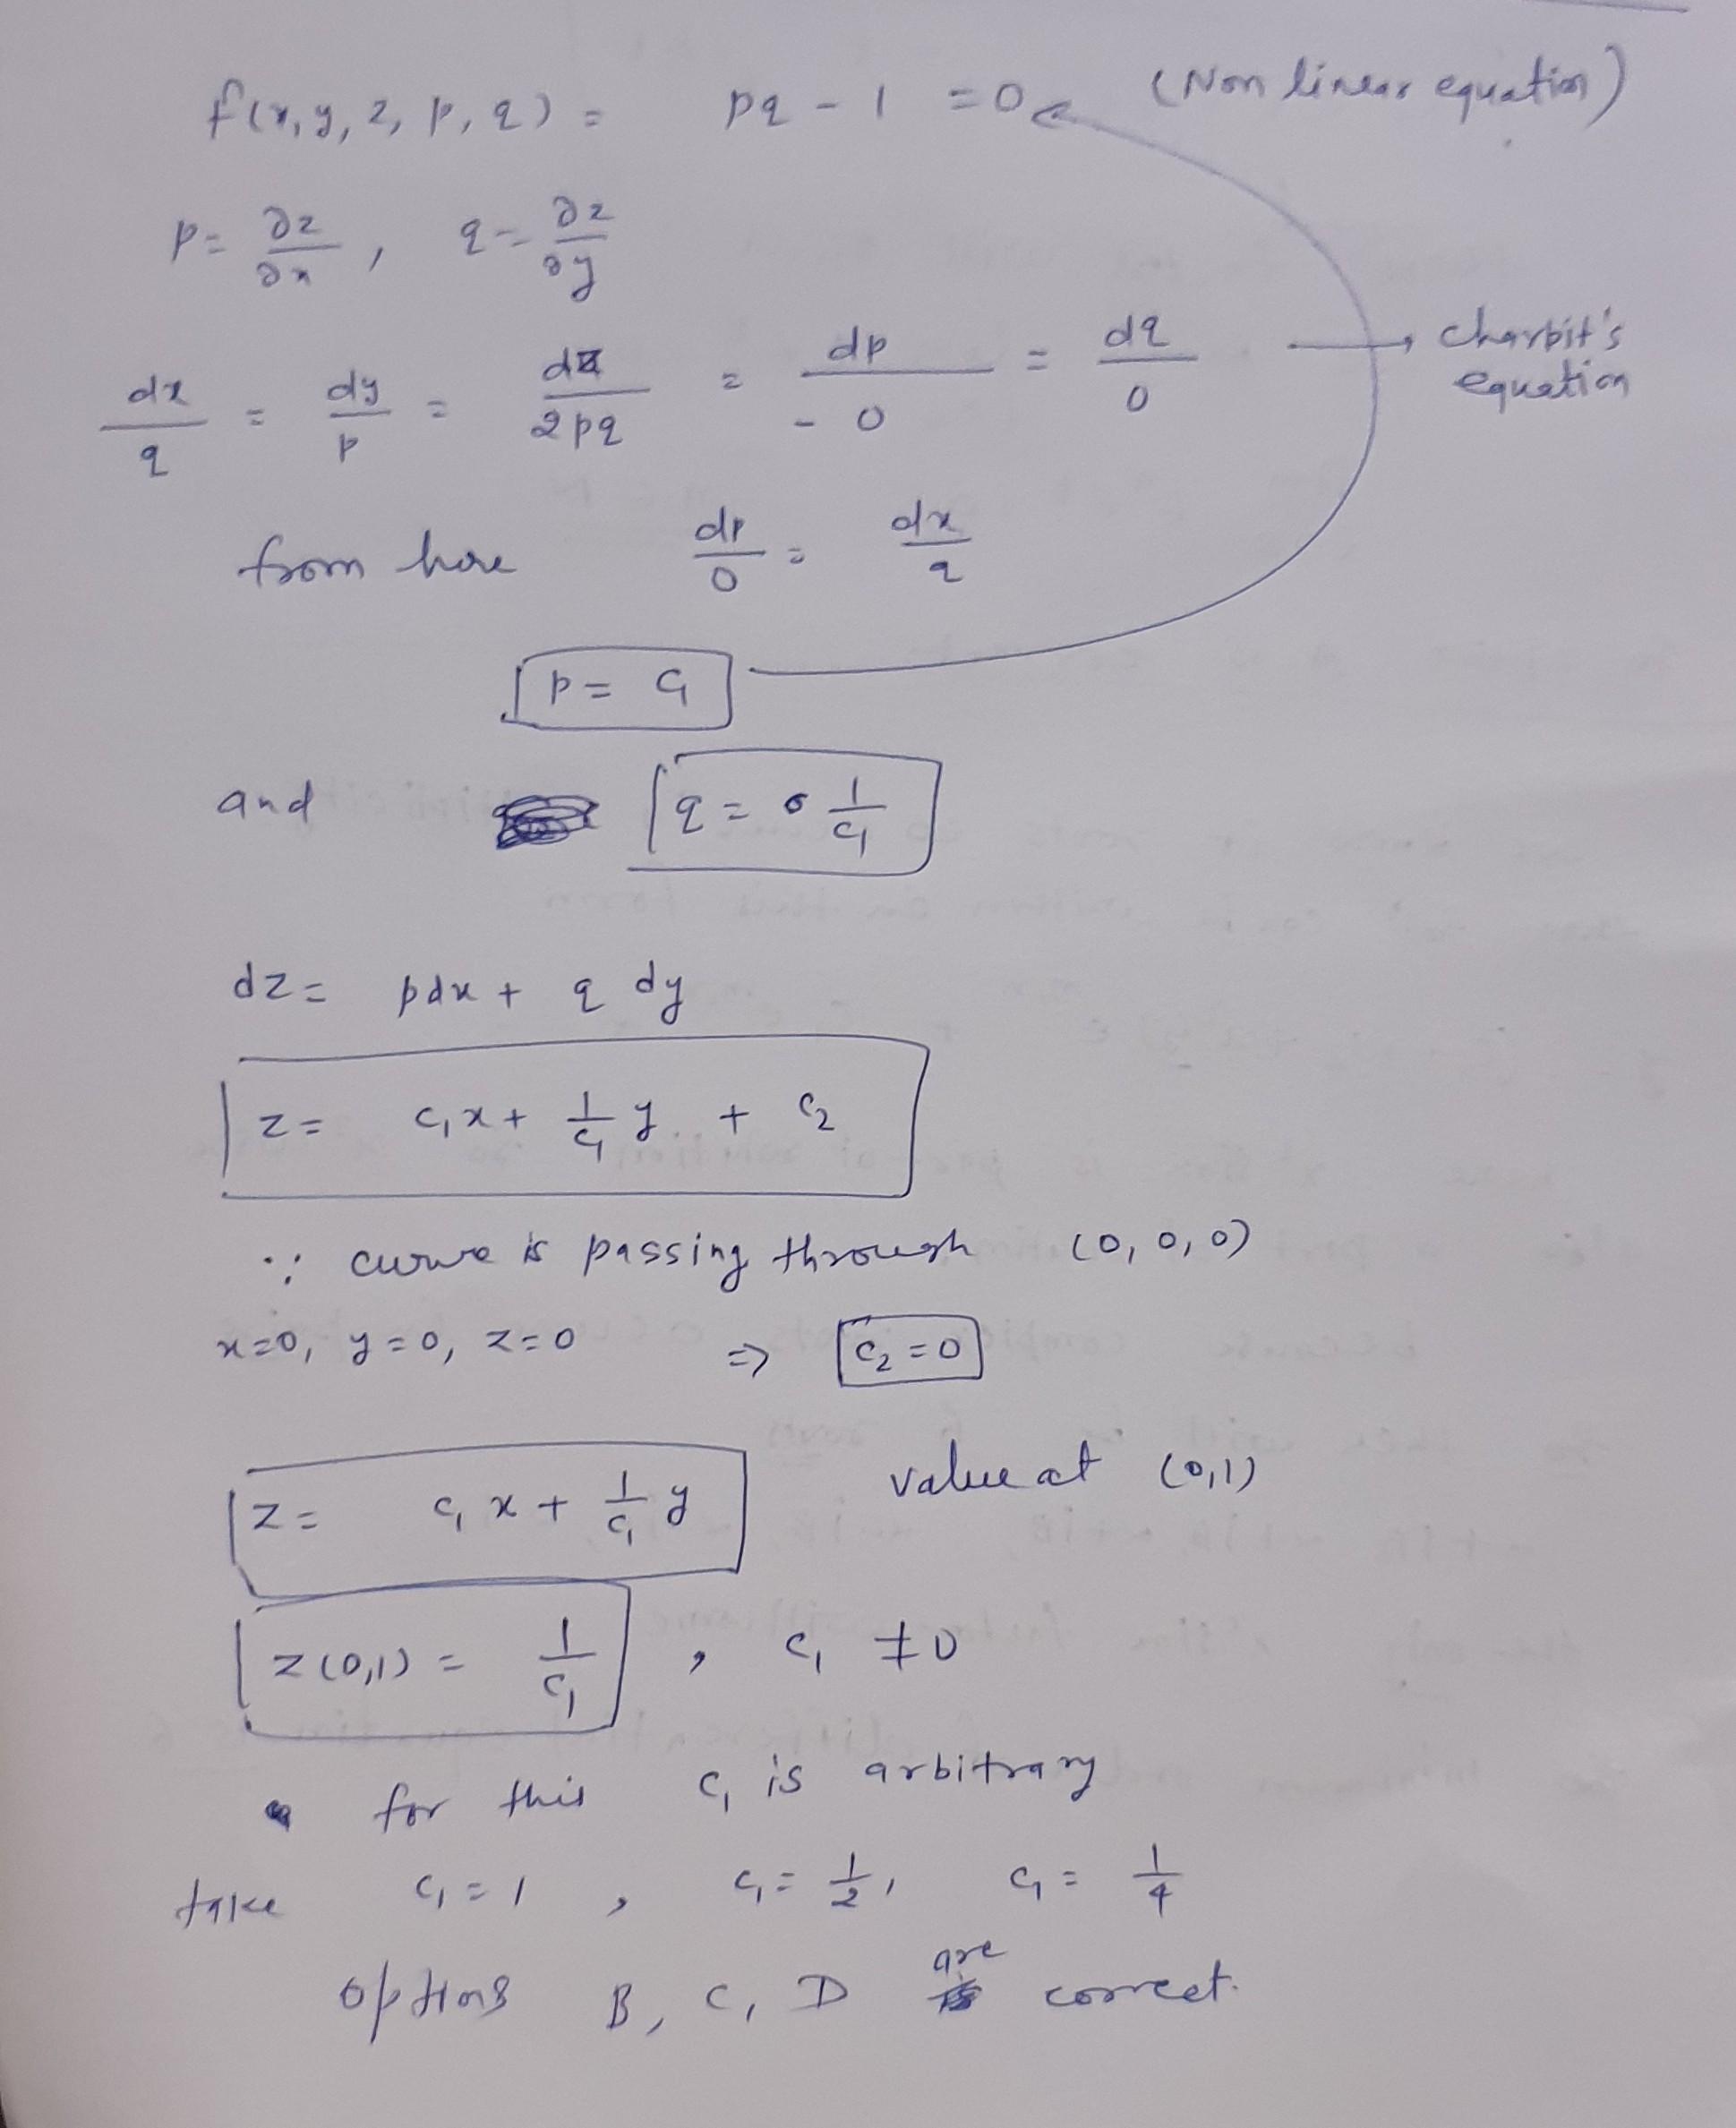 f(x, y, z, p, q) = pq - 1 = 0 (Non linear equation)
p = ∂z/∂x , q = ∂z/∂y
dx/q = dy/p = dz/2pq = dp/-0 = dq/0 → charbit's equation
from here dp/0 = dx/q
p = c₁
and q = 1/c₁
dz = pdx + q dy
z = c₁x + 1/c₁ y + c₂
∵ curve is passing through (0, 0, 0)
x=0, y=0, z=0 ⇒ c₂=0
z = c₁x + 1/c₁ y value at (0,1)
z(0,1) = 1/c₁ , c₁ ≠ 0
for this c₁ is arbitrary
take c₁ = 1 , c₁ = 1/2 , c₁ = 1/4
options B, C, D are correct.